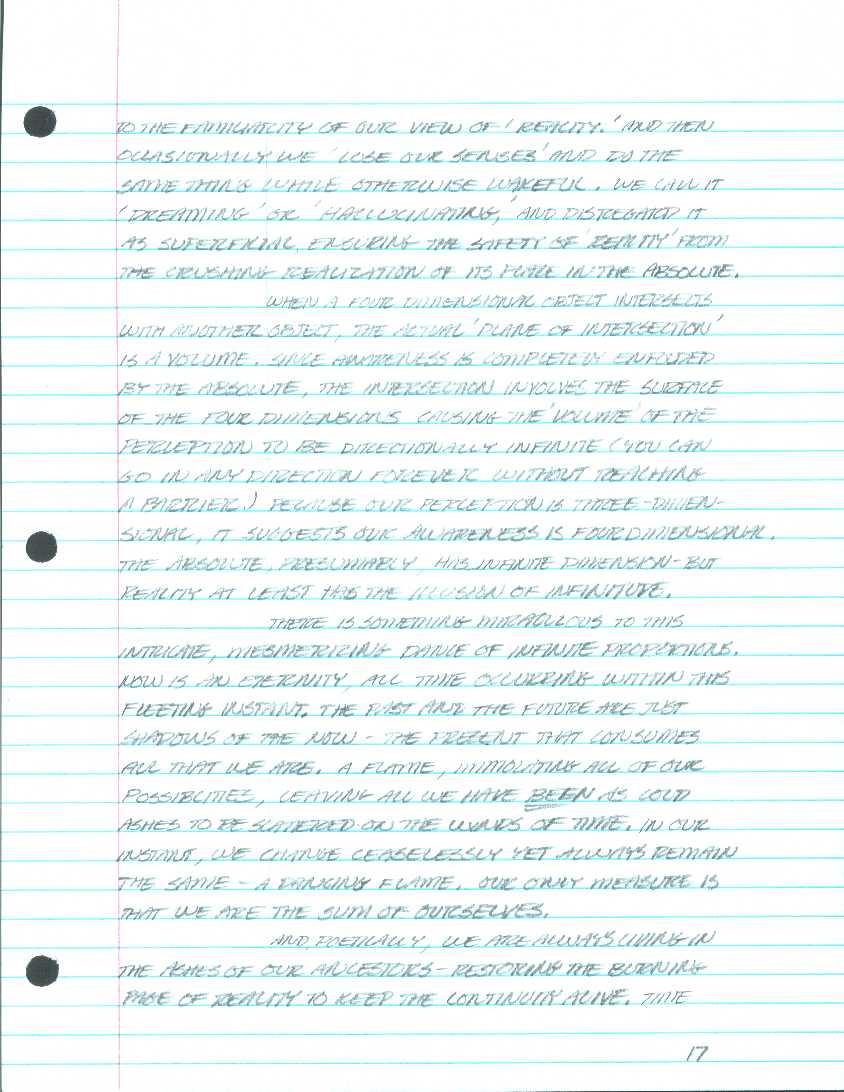 TO THE FAMILIARITY OF OUR VIEW OF 'REALITY.' AND THEN
OCCASIONALLY WE 'LOSE OUR SENSES' AND DO THE
SAME THING WHILE OTHERWISE WAKEFUL. WE CALL IT
'DREAMING' OR 'HALLUCINATING,' AND DISREGARD IT
AS SUPERFICIAL, ENSURING THE SAFETY OF 'REALITY' FROM
THE CRUSHING REALIZATION OF ITS PLACE IN THE ABSOLUTE.
WHEN A FOUR DIMENSIONAL OBJECT INTERSECTS
WITH ANOTHER OBJECT, THE ACTUAL 'PLANE OF INTERSECTION'
IS A VOLUME. SINCE AWARENESS IS COMPLETELY ENFOLDED
BY THE ABSOLUTE, THE INTERSECTION INVOLVES THE SURFACE
OF THE FOUR DIMENSIONS CAUSING THE 'VOLUME' OF THE
PERCEPTION TO BE DIRECTIONALLY INFINITE (YOU CAN
GO IN ANY DIRECTION FOREVER WITHOUT REACHING
A BARRIER.) BECAUSE OUR PERCEPTION IS THREE-DIMEN-
SIONAL, IT SUGGESTS OUR AWARENESS IS FOUR DIMENSIONAL.
THE ABSOLUTE, PRESUMABLY, HAS INFINITE DIMENSION - BUT
REALITY AT LEAST HAS THE ILLUSION OF INFINITUDE.
THERE IS SOMETHING MIRACULOUS TO THIS
INTRICATE, MESMERIZING DANCE OF INFINITE PROPORTIONS.
NOW IS AN ETERNITY, ALL TIME OCCURRING WITHIN THIS
FLEETING INSTANT. THE PAST AND THE FUTURE ARE JUST
SHADOWS OF THE NOW - THE PRESENT THAT CONSUMES
ALL THAT WE ARE. A FLAME, IMMOLATING ALL OF OUR
POSSIBILITIES, LEAVING ALL WE HAVE BEEN AS COLD
ASHES TO BE SCATTERED ON THE WINDS OF TIME. IN OUR
INSTANT, WE CHANGE CEASELESSLY YET ALWAYS REMAIN
THE SAME - A DANCING FLAME. OUR ONLY MEASURE IS
THAT WE ARE THE SUM OF OURSELVES.
AND, POETICALLY, WE ARE ALWAYS LIVING IN
THE ASHES OF OUR ANCESTORS - RESTORING THE BURNING
PAGE OF REALITY TO KEEP THE CONTINUITY ALIVE. TIME
17